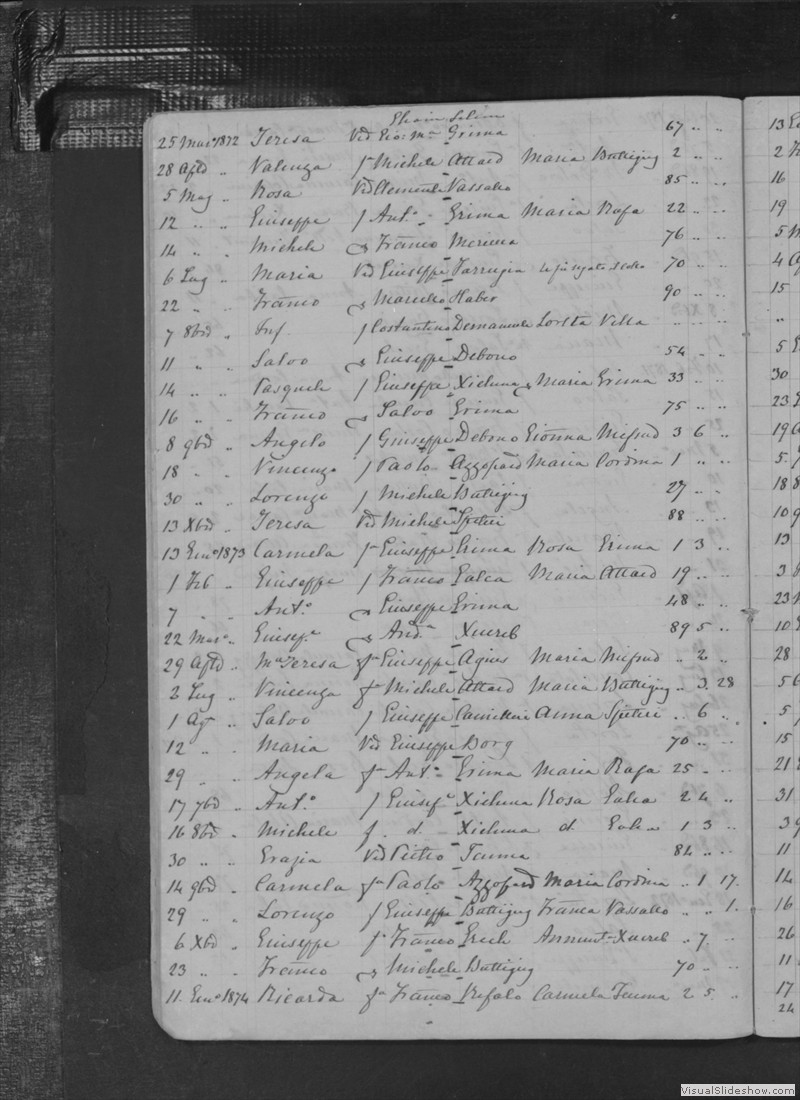 25 Mar° 1872 Teresa Vid Gio: Mª Grima 67 " "
28 Aple " Valenza fª Michele Attard Maria Buttigieg 2 " "
5 Mag " Rosa Vid Clemente Vassallo 85 " "
12 " " Giuseppe f Ant° Grima Maria Rafa 22 " "
14 " " Michele Franco 76 " "
6 Lug " Maria Vid Giuseppe Farrugia 70 " "
22 " " Franco Haber 90 " "
7 8bre " Inf f Costantino Vella " " "
11 " " Salvo Giuseppe Debono 54 " "
14 " " Pasquale f Giuseppe Xicluna Maria Grima 33 " "
16 " " Franco Salvo Grima 75 " "
8 9bre " Angelo f Giuseppe Debono Gioanna Mifsud 3 6 "
18 " " Vincenzo f Paolo Azzopard Maria Cordina 1 " "
30 " " Lorenzo f Michele Buttigieg 27 " "
13 Xbre " Teresa Vid Michele Spiteri 88 " "
13 Gen° 1873 Carmela fª Giuseppe Grima Rosa Grima 1 3 "
1 Feb " Giuseppe f Franco Galea Maria Attard 19 " "
7 " " Ant° Giuseppe Grima 48 " "
22 Mar° " Giusep.e And.a Xuereb 89 5 "
29 Aple " Mª Teresa fª Giuseppe Agius Maria Mifsud " 2 "
2 Lug " Vincenza fª Michele Attard Maria Buttigieg " 3 28
1 Ag° " Salvo f Giuseppe Camilleri Anna Spiteri " 6 "
12 " " Maria Vid Giuseppe Borg 70 " "
29 " " Angela fª Ant° Grima Maria Rafa 25 " "
17 7bre " Ant° f Giusep.e Xicluna Rosa Galea 2 4 "
16 8bre " Michele f. d. Xicluna d. Galea 1 3 "
30 " " Grazia Vid Pietro 84 " "
14 9bre " Carmela fª Paolo Azzopard Maria Cordina " 1 17
29 " " Lorenzo f Giuseppe Buttigieg Franca Vassallo " " 1
6 Xbre " Giuseppe f Franco Grech Annunt. Xuereb " 7 "
23 " " Franco Michele Buttigieg 70 " "
11 Gen° 1874 Ricarda fª Franco Refalo Carmela 2 5 "
13
2
16
19
5
4
15
"
5
30
23
19
5
18
10
13
3
23
10
28
5
5
15
21
31
3
11
14
16
26
11
17
24
VisualSlideshow.com